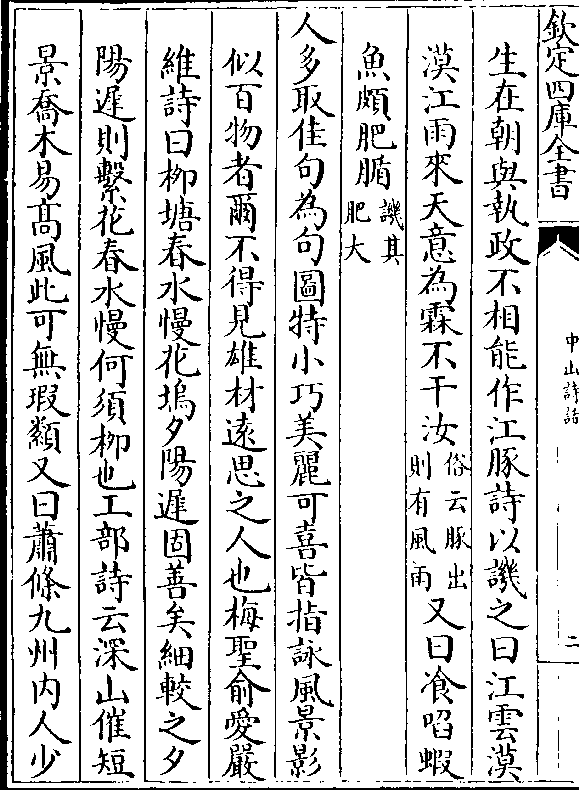 欽定四庫全書
中山詩話
二
生在朝與執政不相能作江豚詩以譏之曰江雲漠
漠江雨來天意為霖不干汝俗云豚出則有風雨又曰飡啗蝦
魚頗肥腯譏其肥大
人多取佳句為句圖特小巧美麗可喜皆指詠風景影
似百物者爾不得見雄材遠思之人也梅聖俞愛嚴
維詩曰栁塘春水慢花塢夕陽遲固善矣細較之夕
陽遲則繫花春水慢何須栁也工部詩云深山催短
景喬木易髙風此可無瑕纇又曰蕭條九州内人少